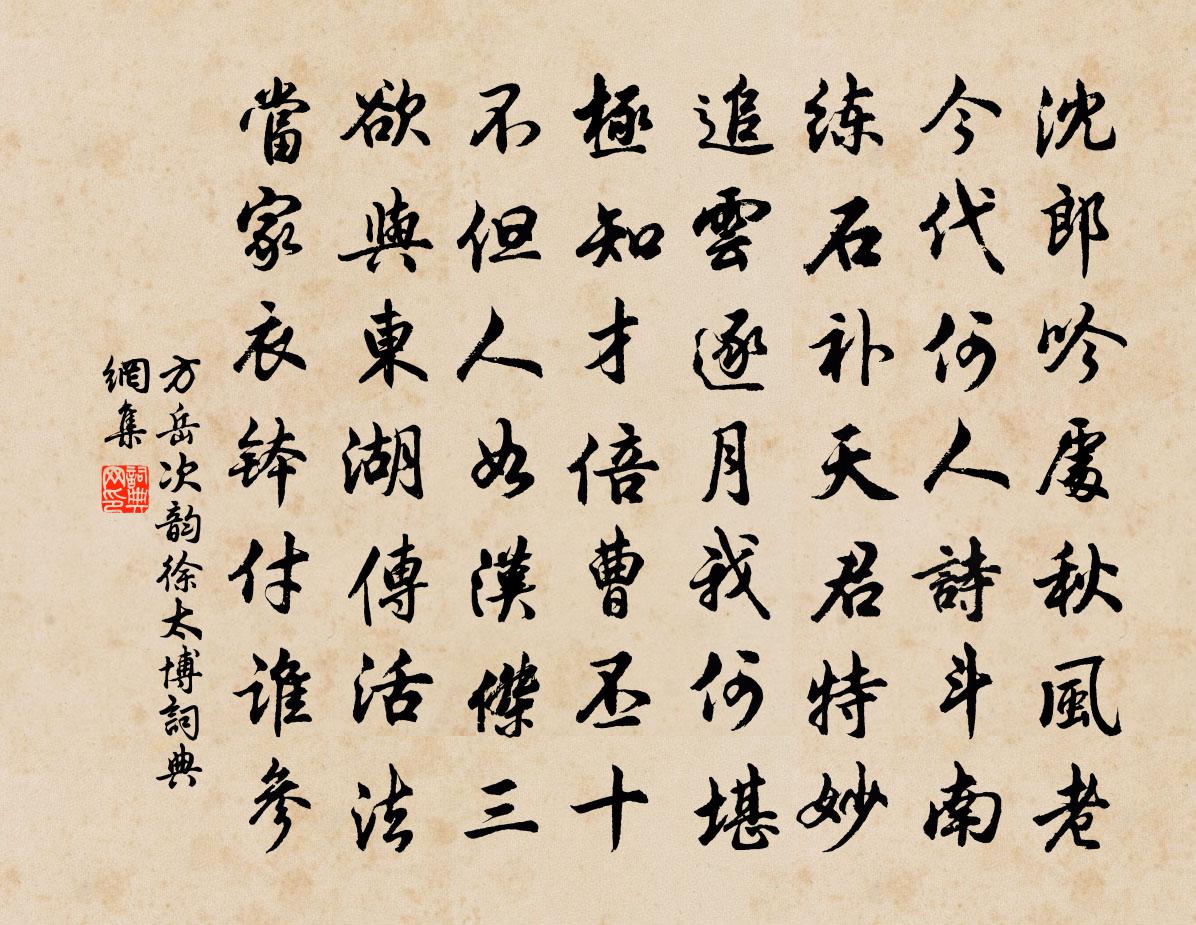 沈郎吟處秋風老
今代何人詩斗南
练石补天君特妙
追雲逐月我何堪
極知才倍曹丕十
不但人如漢傑三
欲與東湖傳活法
當家衣钵付誰參
方岳次韵徐太博詞典
網集
詞典网印